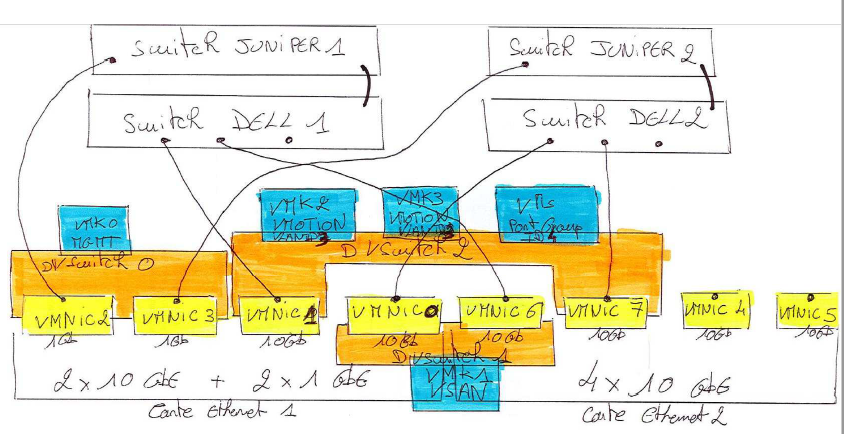 Switch JUNIPER 1
Switch JUNIPER 2
Switch DELL 1
Switch DELL 2
VMK0
MGMT
VMK2
VMOTION
VMK3
VMOTION
VMs
Port Group
DVSwitch 0
DVSwitch 2
VMNIC 2
1Gb
VMNIC 3
1Gb
VMNIC 1
10Gb
VMNIC 0
10Gb
VMNIC 6
10Gb
VMNIC 7
10Gb
VMNIC 4
10Gb
VMNIC 5
10Gb
DVSwitch 1
VMK1
VSAN
2 x 10 GbE + 2 x 1 GbE
4 x 10 GbE
Carte Ethernet 1
Carte Ethernet 2